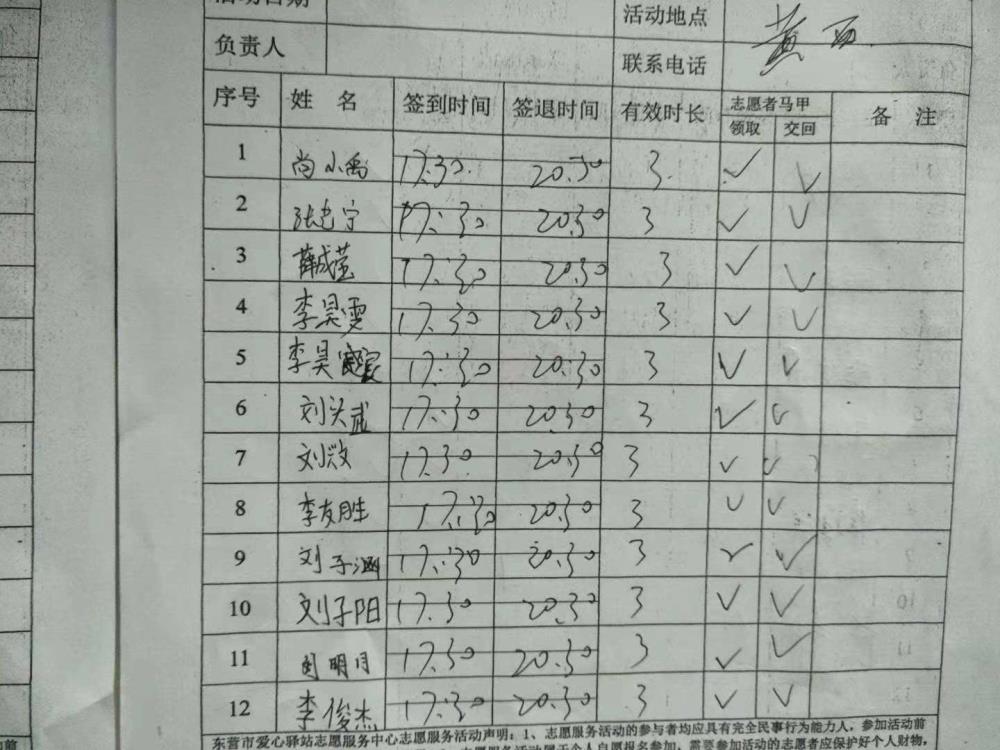 活动日期 活动地点 黄西
负责人 联系电话
序号 姓 名 签到时间 签退时间 有效时长 志愿者马甲 备 注
领取 交回
1 尚小禹 17:30 20:30 3 ✓ ✓
2 张志宁 17:30 20:30 3 ✓ ✓
3 薛成莹 17:30 20:30 3 ✓ ✓
4 李昊雯 17:30 20:30 3 ✓ ✓
5 李昊 17:30 20:30 3 ✓ ✓
6 刘 17:30 20:30 3 ✓ ✓
7 刘 17:30 20:30 3 ✓ ✓
8 李友胜 17:30 20:30 3 ✓ ✓
9 刘子涵 17:30 20:30 3 ✓ ✓
10 刘子阳 17:30 20:30 3 ✓ ✓
11 明月 17:30 20:30 3 ✓ ✓
12 李俊杰 17:30 20:30 3 ✓ ✓
东营市爱心驿站志愿服务中心志愿服务活动声明：1、志愿服务活动的参与者均应具有完全民事行为能力人，参加活动前
志愿服务活动属于个人自愿报名参加，需要参加活动的志愿者应保护好个人财物，